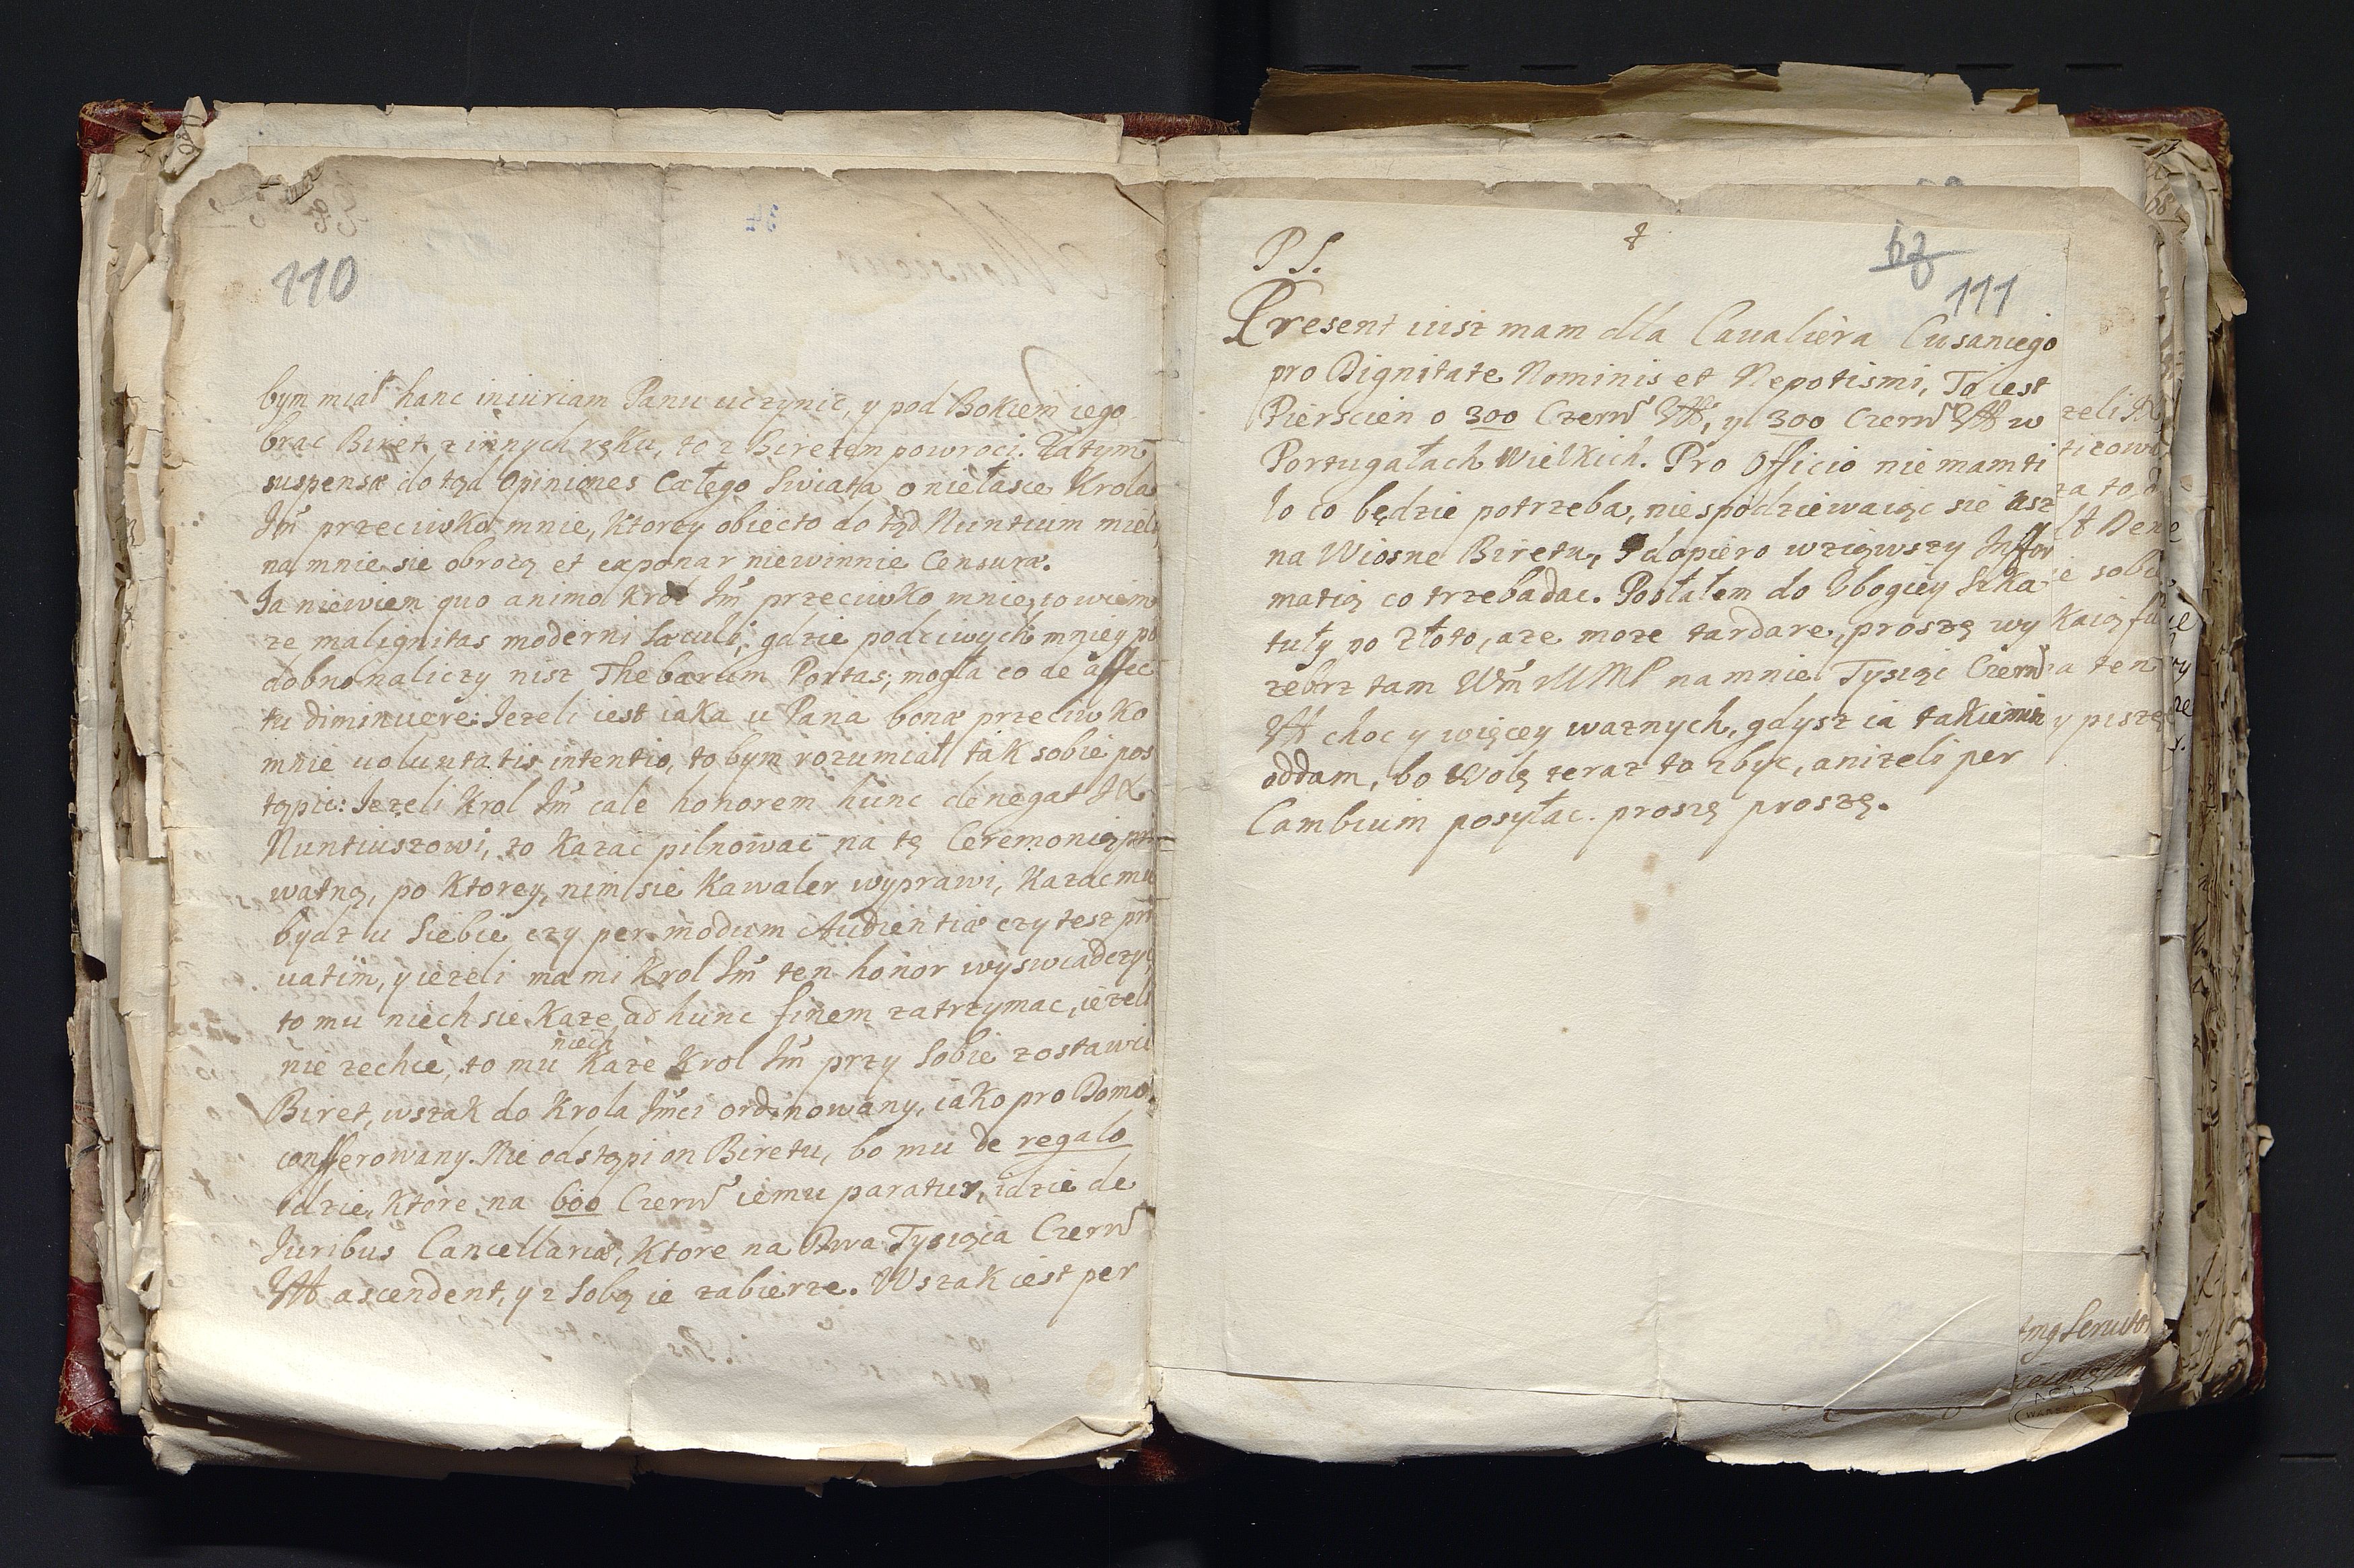 110
bym miał hanc iniuriam Panu uczynic, y pod Bokiem iego
brac Biret z innych ręku, to z Biretem powroci. Zatym
suspensæ do tąd Opiniones Całego Swiata o niełasce Krola
Jm̃ przeciwko mnie, Ktorey obiecto do tąd Nuntium mieli,
na mnie sie obrocą et exponar niewinnie Censuræ.
Ja niewiem quo animo Krol Jm̃ przeciwko mnie, to wiem
ze malignitas moderni Sæculi, gdzie podciwych mniey po
dobno naliczy nisz Thebarum Portas, mogła co de affec
tu diminuere: Jezeli iest iaka u Pana bonæ przeciwko
mnie uoluntatis intentio, to bym rozumiał tak sobie pos
tąpic: Jezeli Krol Jm̃ cale honorem hunc denegat JX
Nuntiuszowi, to Kazac pilnowac na tę Ceremonią pri
watną, po Ktorey, nim sie Kawaler wyprawi, Kazac mu
bydz u Siebie czy per modum Audientiæ czy tesz pri
uatim, y iezeli ma mi Krol Jm̃ ten honor wyswiadczyc,
to mu niech sie Kaze ad hunc finem zatrzymac, iezeli
nie zechce, to mu niech Kaze Krol Jm̃ przy Sobie zostawic
Biret, wszak do Krola Jm̃ci ordinowany, iako pro Domo
confferowany. Nie odstąpi on Biretu, bo mu de regalo
idzie, Ktore na 600 Czerw̃ iemu paratur, idzie de
Juribus Cancellariæ, Ktore na Dwa Tysiąca Czerw̃
Zł ascendent, y z Sobą ie zabierze. Wszak iest per
P S.
67
111
Present iusz mam dla Caualiera Cusaniego
pro Dignitate Nominis et Nepotismi, To iest
Pierscien o 300 Czerw̃ Zł, y 300 Czerw̃ Zł w
Portugałach Wielkich. Pro Officio nie mam ti
lo co będzie potrzeba, nie spodziewaiąc sie asz
na Wiosne Biretu, dopiero wziąwszy Inffor
matią co trzeba dac. Posłałem do Ubogiey Szka
tuły po Złoto, a ze moze tardare, proszę wy
zebrz tam Wm̃ MMP na mnie Tysiąc Czerw̃
Zł choc y więcey waznych, gdysz ia takiemisz
oddam, bo Wolę teraz to zbyc, anizeli per
Cambium posyłac. proszę proszę.
zeli JX
ticowa
za to
lt Dene
e sobie
Kaią
a ten
y piszę